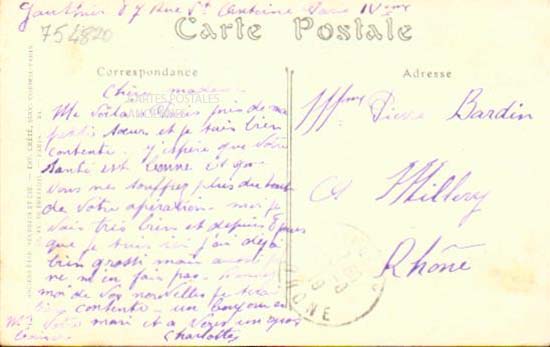 Gauthier 87 Rue St Antoine Paris IVème
754820
Carte Postale
Correspondance
Adresse
CARTES POSTALES
Chère madame
Me voilà à Paris près de ma
petite sœur et je suis bien
contente. J'espère que votre
santé est bonne et que
vous ne souffrez plus du tout
de votre opération. moi je
vais très bien et depuis 8 jours
que je suis ici j'ai déjà
bien grossi mais aussi je
ne m'en fais pas. Donnez
moi de vos nouvelles je serai
si contente. un bonjour à
votre mari et à vous un gros
Charlotte
Mme Pierre Bardin
à Millery
Rhône
RHONE